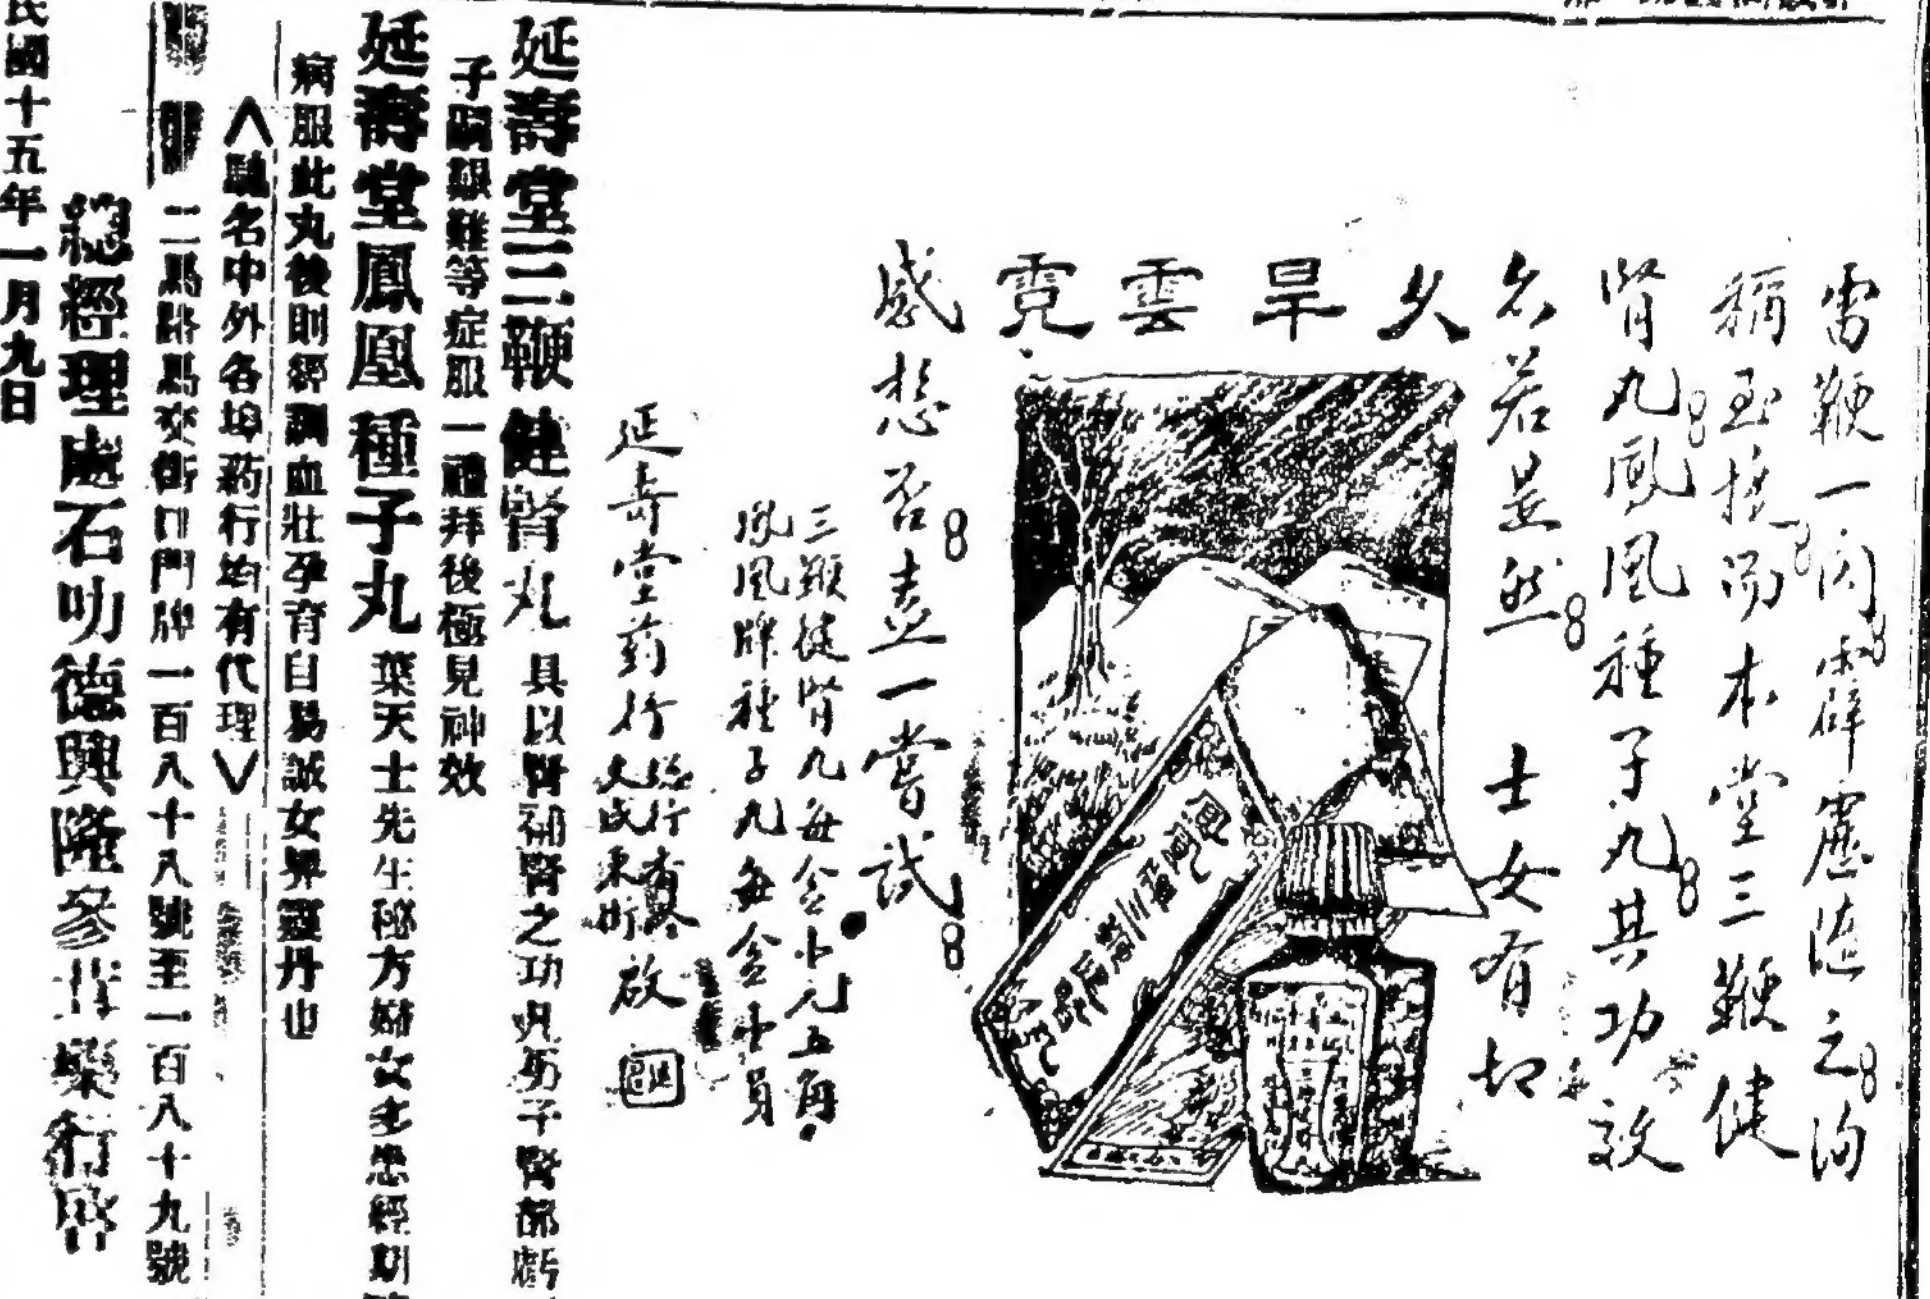 久旱雲霓
雷鞭一閃霹靂隨之洵
稱至接而本堂三鞭健
腎丸鳳凰種子丸其功效
亦若是然 士女有切
感想否盍一嘗試
三鞭健腎丸每盒十元五角
鳳凰牌種子丸每盒十員
延壽堂葯行
啟
延壽堂三鞭健腎丸 具以腎補腎之功凡男子腎部虧
子嗣艱難等症服一禮拜後極見神效
延壽堂鳳凰種子丸 葉天士先生秘方婦女多患經期
病服此丸後則經調血壯孕育自易誠女界靈丹也
馳名中外各埠葯行均有代理
二馬路馬交街口門牌一百八十八號至一百八十九號
總經理處石叻德興隆參茸藥行啓
民國十五年一月九日